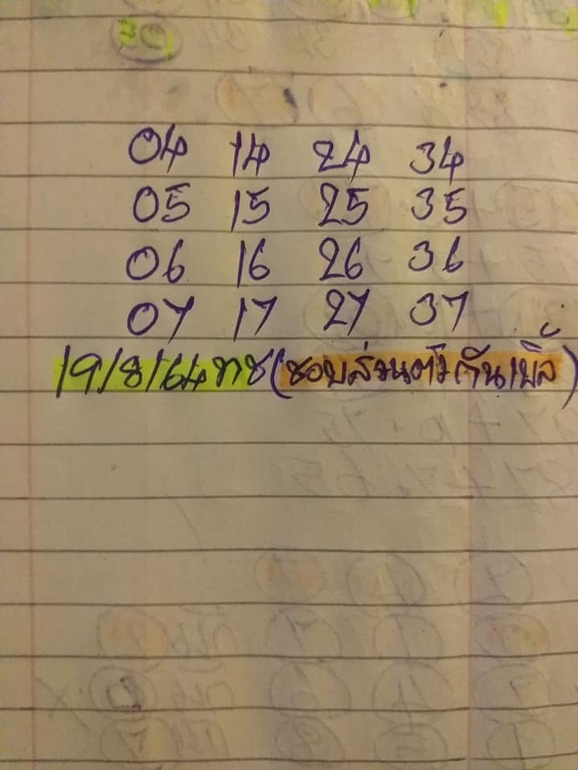 04 14 24 34
05 15 25 35
06 16 26 36
07 17 27 37
19/8/64 ทช (ชอบส่วนตัว กันเบิ้ล)